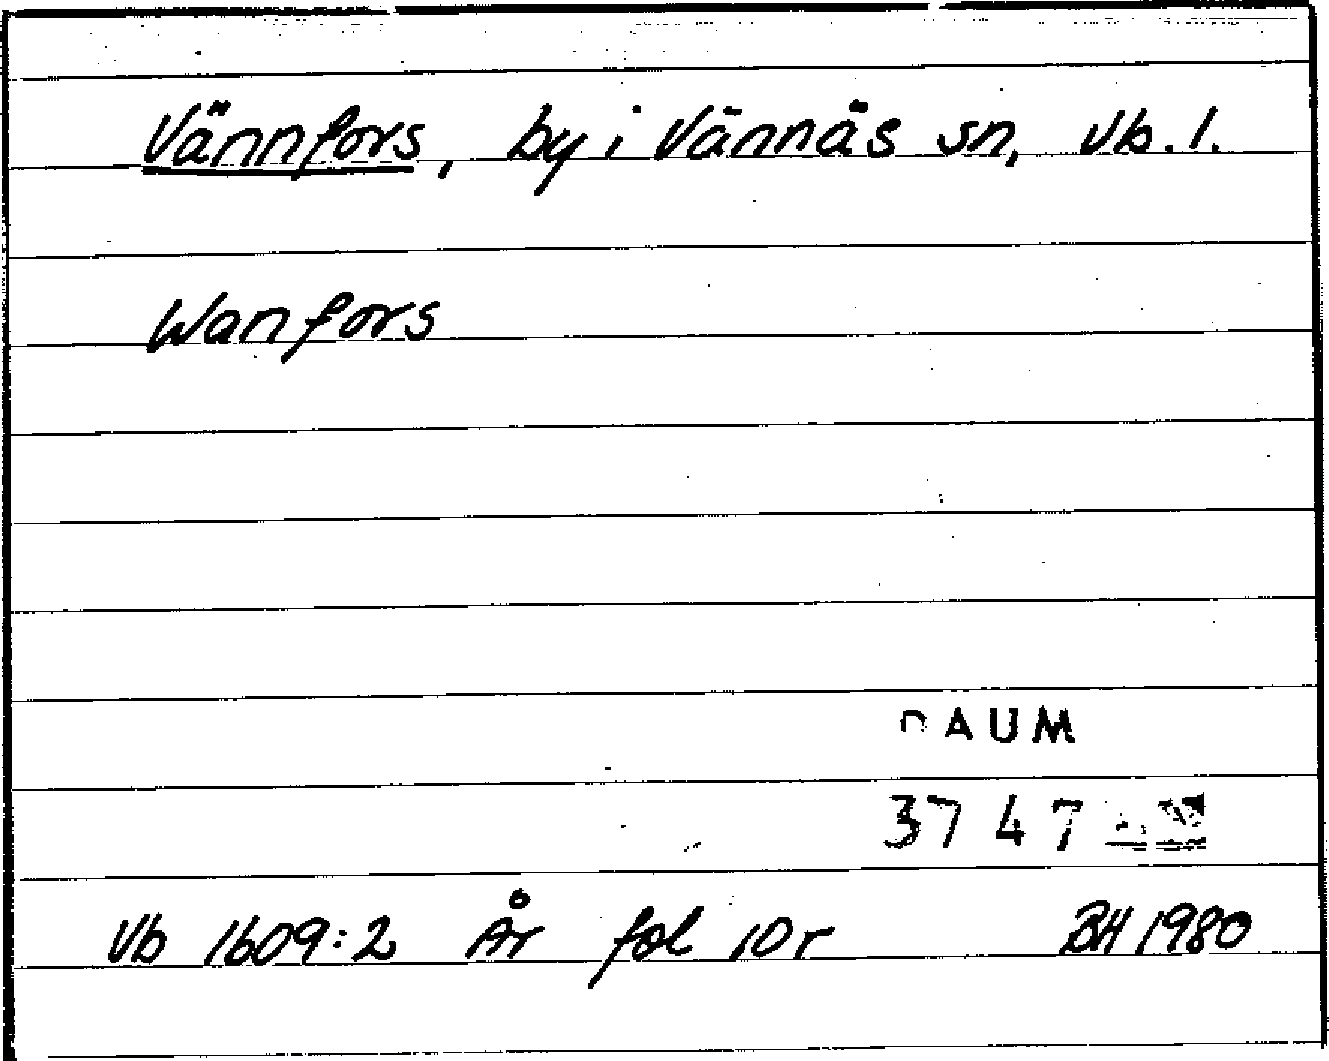 Vännfors, by i Vännäs sn, Vb. l.
Wanfors
DAUM
3747
Vb 1609:2 År fol 10r BH 1980